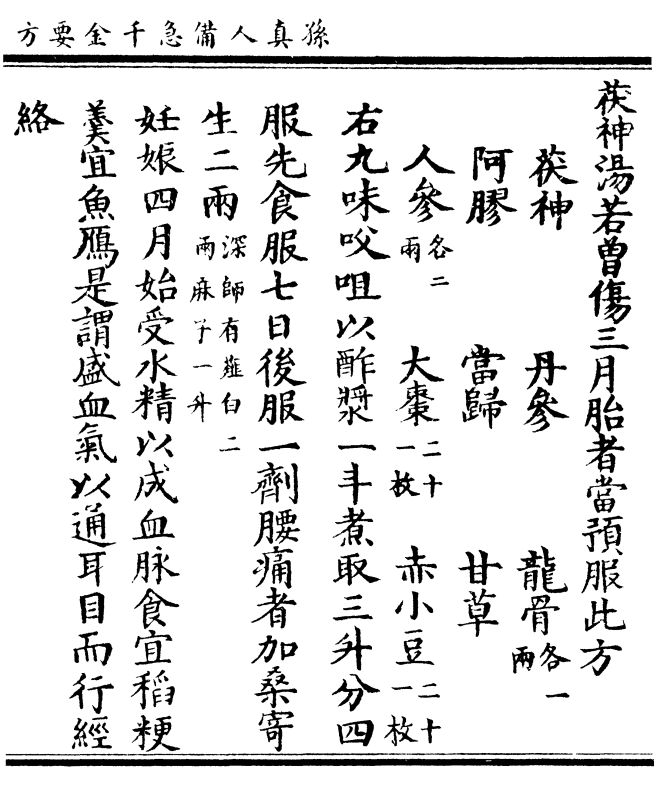 孫真人備急千金要方
茯神湯若曾傷三月胎者當預服此方
茯神 丹參 龍骨各一兩
阿膠 當歸 甘草
人參各二兩 大棗二十一枚 赤小豆二十一枚
右九味㕮咀以酢漿一斗煮取三升分四
服先食服七日後服一劑腰痛者加桑寄
生二兩深師有薤白二兩麻子一升
妊娠四月始受水精以成血脉食宜稻粳
羹宜魚鴈是謂盛血氣以通耳目而行經
絡